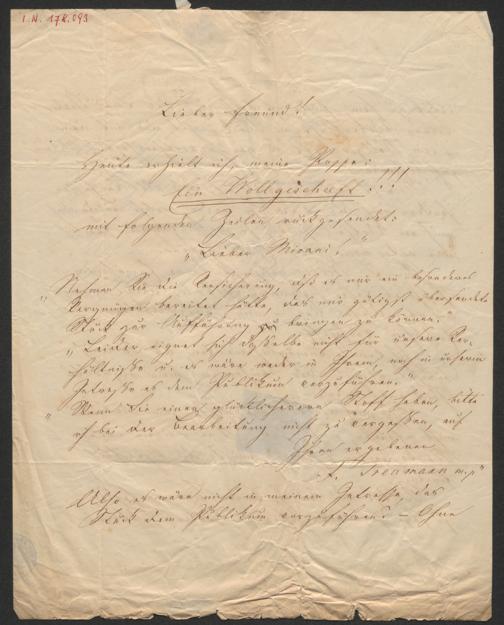 I.N. 178.093
Lieber Freund!
Heute erhielt ich meine Posse:
Ein Wollgeschaeft!!!
mit folgenden Zeilen rückgesendet:
„Lieber Mirani!"
„Nehmen Sie die Versicherung, daß es mir ein besonderes
Vergnügen bereitet hätte, das mir gütigst übersendete
Stück zur Aufführung zu bringen zu können."
„Leider eignet sich dasselbe nicht für unsere Ver-
hältnisse u. es wäre weder in Ihrem, noch in unserem
Interesse es dem Publikum vorzuführen."
„Wenn Sie einen glücklicheren Stoff haben, bitte
ich bei der Bearbeitung nicht zu vergessen, auf
Ihren ergebenen
F. Treumann m.p."
Also es wäre nicht in meinem Interesse das
Stück dem Publikum vorzuführen? — Ohne